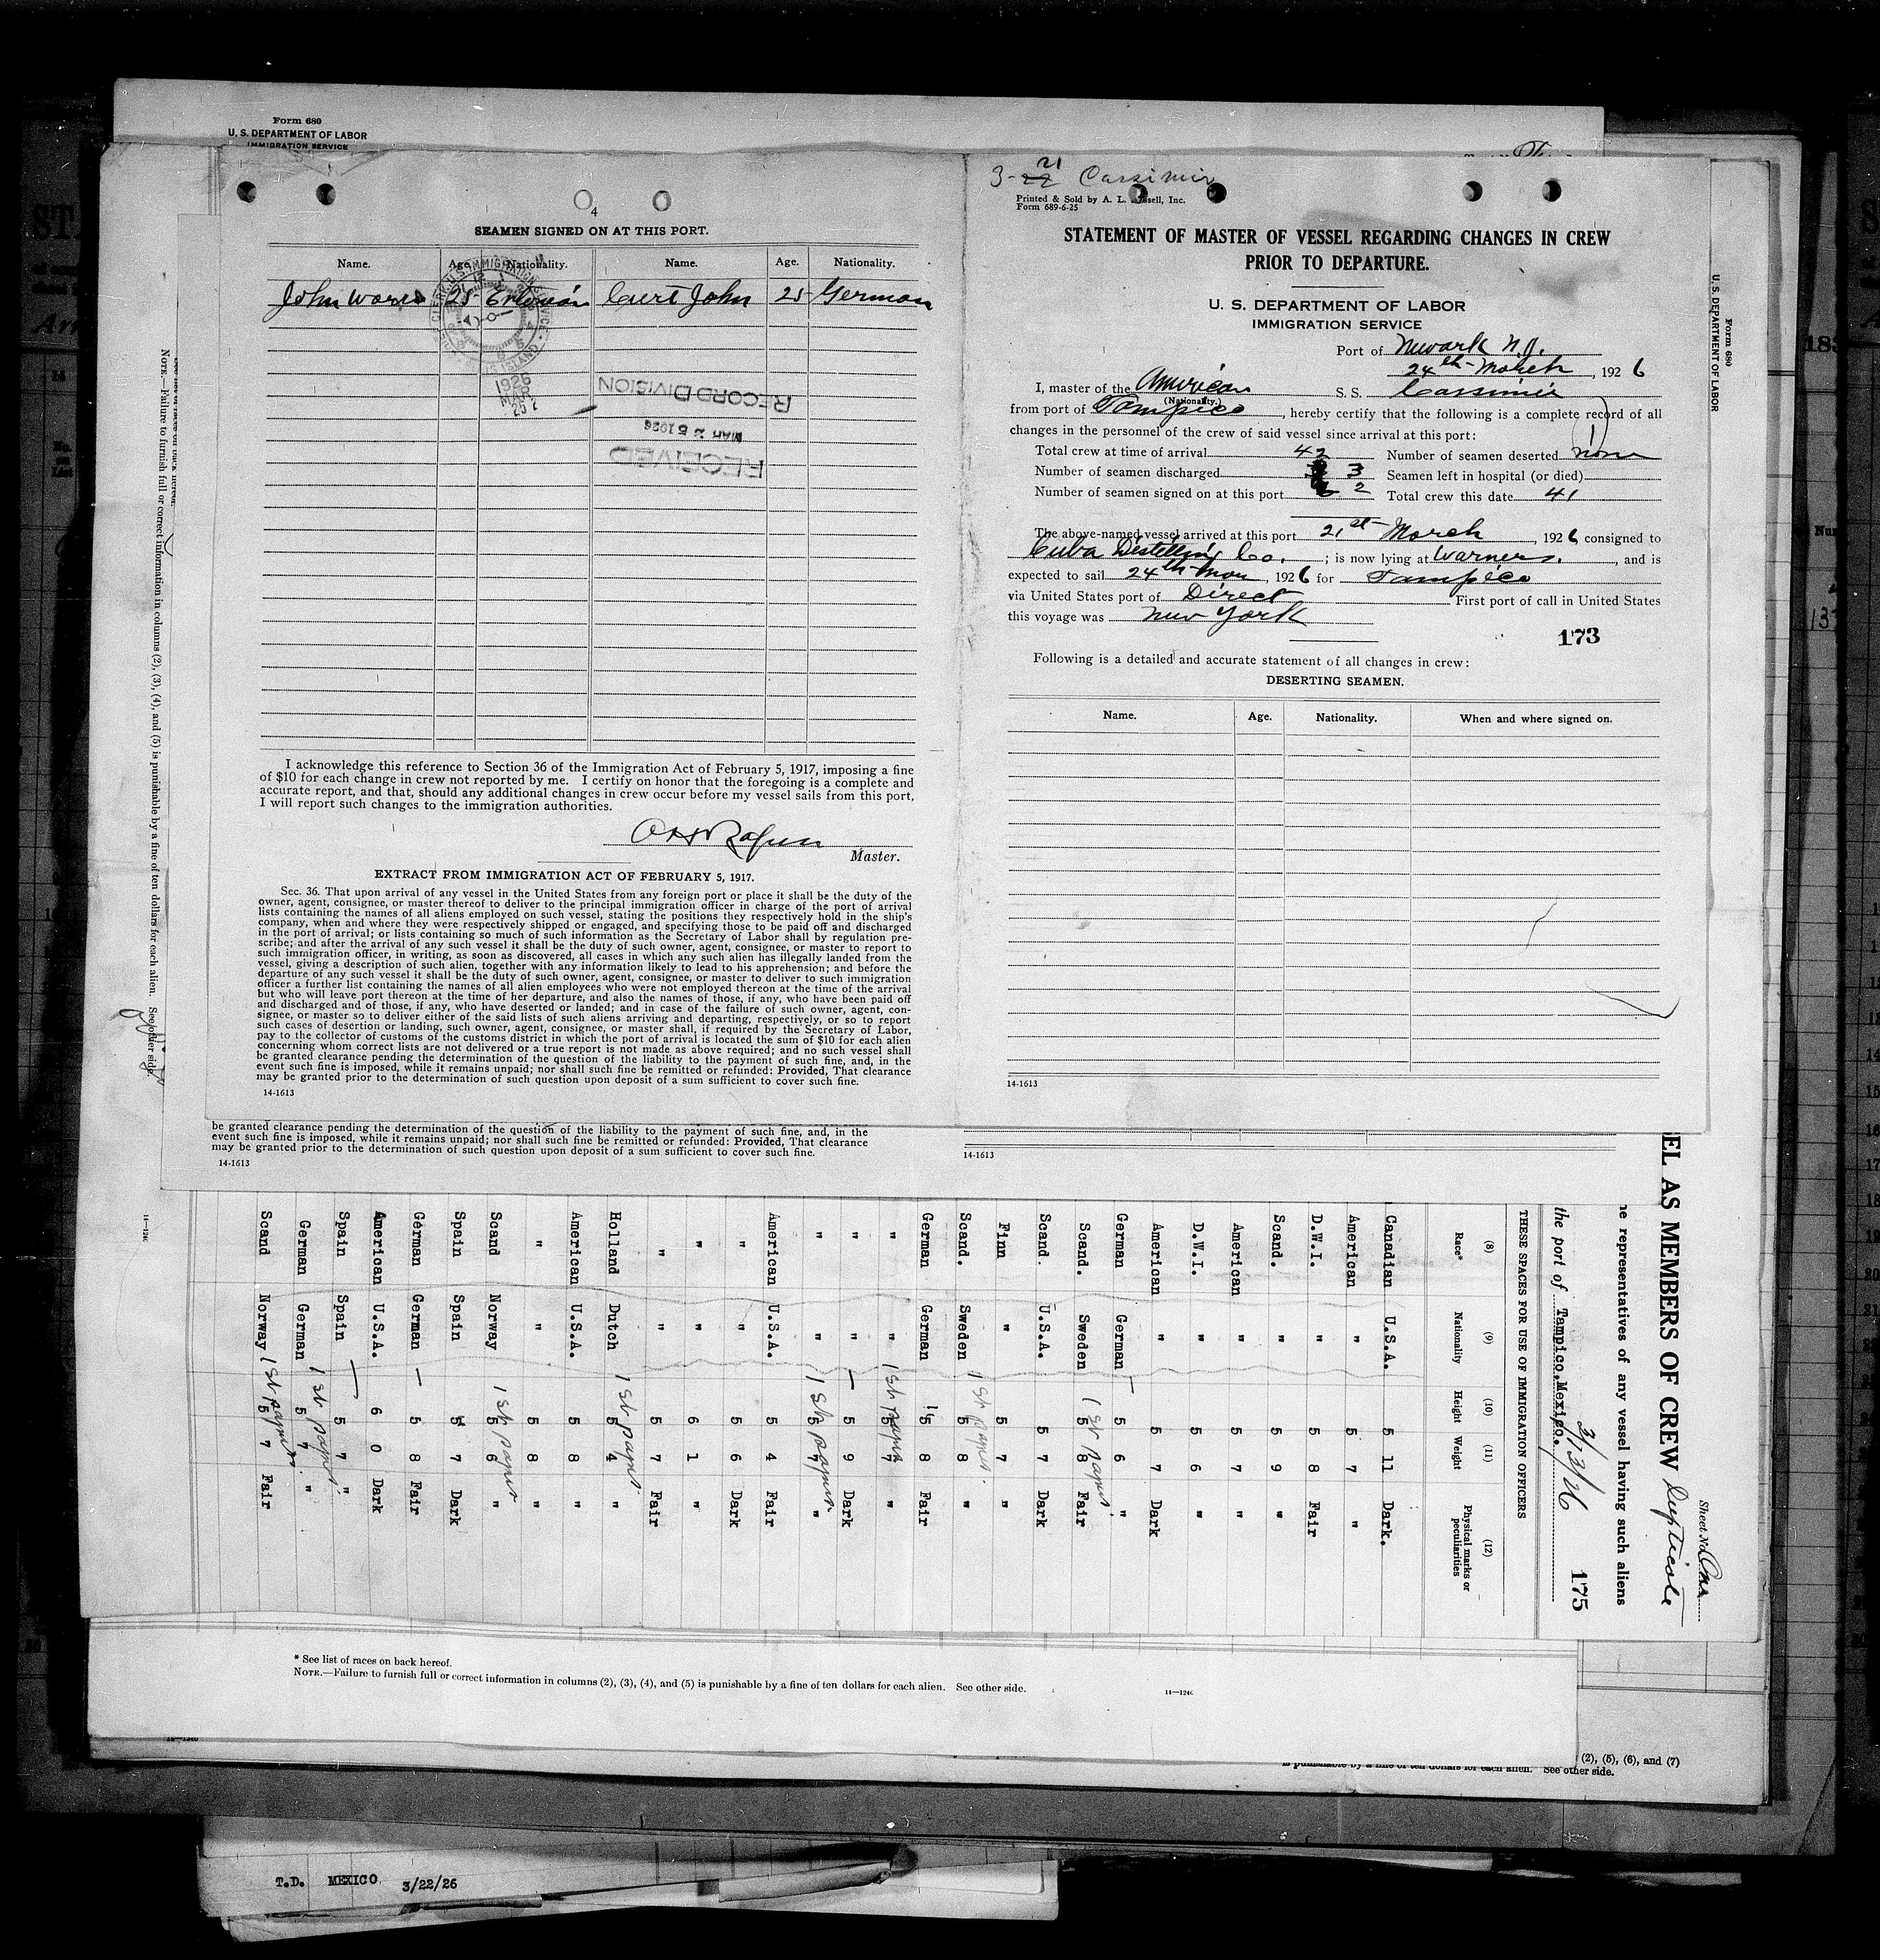 Form 680
U. S. DEPARTMENT OF LABOR
IMMIGRATION SERVICE
4
SEAMEN SIGNED ON AT THIS PORT.
Name. Age. Nationality. Name. Age. Nationality.
John 25 Curt John 25 German
1926
MAR
25
RECORD DIVISION
MAR 25 1926
RECEIVED
I acknowledge this reference to Section 36 of the Immigration Act of February 5, 1917, imposing a fine
of $10 for each change in crew not reported by me. I certify on honor that the foregoing is a complete and
accurate report, and that, should any additional changes in crew occur before my vessel sails from this port,
I will report such changes to the immigration authorities.
Master.
EXTRACT FROM IMMIGRATION ACT OF FEBRUARY 5, 1917.
Sec. 36. That upon arrival of any vessel in the United States from any foreign port or place it shall be the duty of the
owner, agent, consignee, or master thereof to deliver to the principal immigration officer in charge of the port of arrival
lists containing the names of all aliens employed on such vessel, stating the positions they respectively hold in the ship's
company, when and where they were respectively shipped or engaged, and specifying those to be paid off and discharged
in the port of arrival; or lists containing so much of such information as the Secretary of Labor shall by regulation pre-
scribe; and after the arrival of any such vessel it shall be the duty of such owner, agent, consignee, or master to report to
such immigration officer, in writing, as soon as discovered, all cases in which any such alien has illegally landed from the
vessel, giving a description of such alien, together with any information likely to lead to his apprehension; and before the
departure of any such vessel it shall be the duty of such owner, agent, consignee, or master to deliver to such immigration
officer a further list containing the names of all alien employees who were not employed thereon at the time of the arrival
but who will leave port thereon at the time of her departure, and also the names of those, if any, who have been paid off
and discharged and of those, if any, who have deserted or landed; and in case of the failure of such owner, agent, con-
signee, or master so to deliver either of the said lists of such aliens arriving and departing, respectively, or so to report
such cases of desertion or landing, such owner, agent, consignee, or master shall, if required by the Secretary of Labor,
pay to the collector of customs of the customs district in which the port of arrival is located the sum of $10 for each alien
concerning whom correct lists are not delivered or a true report is not made as above required; and no such vessel shall
be granted clearance pending the determination of the question of the liability to the payment of such fine, and, in the
event such fine is imposed, while it remains unpaid; nor shall such fine be remitted or refunded: Provided, That clearance
may be granted prior to the determination of such question upon deposit of a sum sufficient to cover such fine.
14-1613
3-21 Cassimir
Printed & Sold by A. L. sell, Inc.
Form 689-6-25
STATEMENT OF MASTER OF VESSEL REGARDING CHANGES IN CREW
PRIOR TO DEPARTURE.
U. S. DEPARTMENT OF LABOR
IMMIGRATION SERVICE
Port of Newark N.J.
24th March, 1926
I, master of the American S. S. Cassimir
(Nationality.)
from port of Tampico, hereby certify that the following is a complete record of all
changes in the personnel of the crew of said vessel since arrival at this port:
Total crew at time of arrival 42 Number of seamen deserted none
Number of seamen discharged 3 Seamen left in hospital (or died)
Number of seamen signed on at this port 2 Total crew this date 41
The above-named vessel arrived at this port 21st March, 1926 consigned to
Cuba Distilling Co.; is now lying at Warners., and is
expected to sail 24th Mar, 1926 for Tampico
via United States port of Direct First port of call in United States
this voyage was New York
173
Following is a detailed and accurate statement of all changes in crew:
DESERTING SEAMEN.
Name. Age. Nationality. When and where signed on.
14-1613
Form 680
U. S. DEPARTMENT OF LABOR
NOTE.—Failure to furnish full or correct information in columns (2), (3), (4), and (5) is punishable by a fine of ten dollars for each alien. See other side.
14—1240
be granted clearance pending the determination of the question of the liability to the payment of such fine, and, in the
event such fine is imposed, while it remains unpaid; nor shall such fine be remitted or refunded: Provided, That clearance
may be granted prior to the determination of such question upon deposit of a sum sufficient to cover such fine.
14-1613
14-1613
Sheet No. One
EL AS MEMBERS OF CREW Duplicate
representatives of any vessel having such aliens
the port of Tampico.Mexico. 3/13/26 175
THESE SPACES FOR USE OF IMMIGRATION OFFICERS
(8) (9) (10) (11) (12)
Race* Nationality Height Weight Physical marks or peculiarities
Canadian U.S.A. 5 11 Dark.
American " 5 7 "
D.W.I. " 5 8 Fair
Scand. " 5 9 "
American " 5 7 "
D.W.I. " 5 6 "
American " 5 7 Dark
German German — 5 6 "
Scand. Sweden 1st papers 5 8 Fair
Scand. U.S.A. 5 7 Dark
Finn " 5 7 "
Scand. Sweden 1st papers 5 8 "
German German 5 8 Fair
" " 1st papers 5 7 "
" " — 5 9 Dark
" " 1st papers 5 7 "
American U.S.A. 5 4 Fair
" " 5 6 Dark
" " 6 1 "
" " 5 7 Fair
Holland Dutch 1st papers 5 4 "
American U.S.A. 5 8 "
" " 5 8 "
Scand Norway 1st papers 5 6 "
Spain Spain 5 7 Dark
German German — 5 8 Fair
American U.S.A. 6 0 Dark
Spain Spain — 5 7 "
German German 1st papers 5 7 "
Scand Norway 1st papers 5 7 Fair
* See list of races on back hereof.
NOTE.—Failure to furnish full or correct information in columns (2), (3), (4), and (5) is punishable by a fine of ten dollars for each alien. See other side.
14—1240
(2), (5), (6), and (7)
is punishable by a fine of ten dollars for each alien. See other side.
T.D. MEXICO 3/22/26